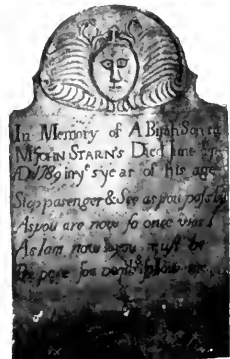 In Memory of ABijah Son to
Mr JOHN STARNS Died June
AD 1789 in ye year of his age
Stop pasenger & See as you pass by
As you are now so once was I
As I am now you must be
Prepare for death follow me